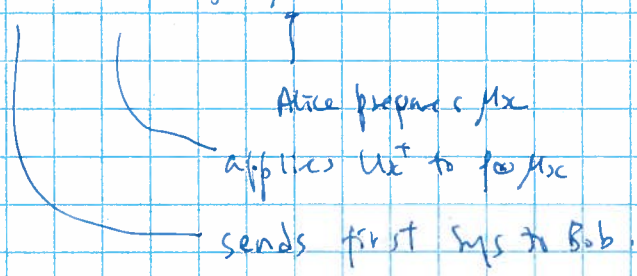 Alice prepares μx
applies Ux† to ρ⊗μx
sends first sys to Bob.